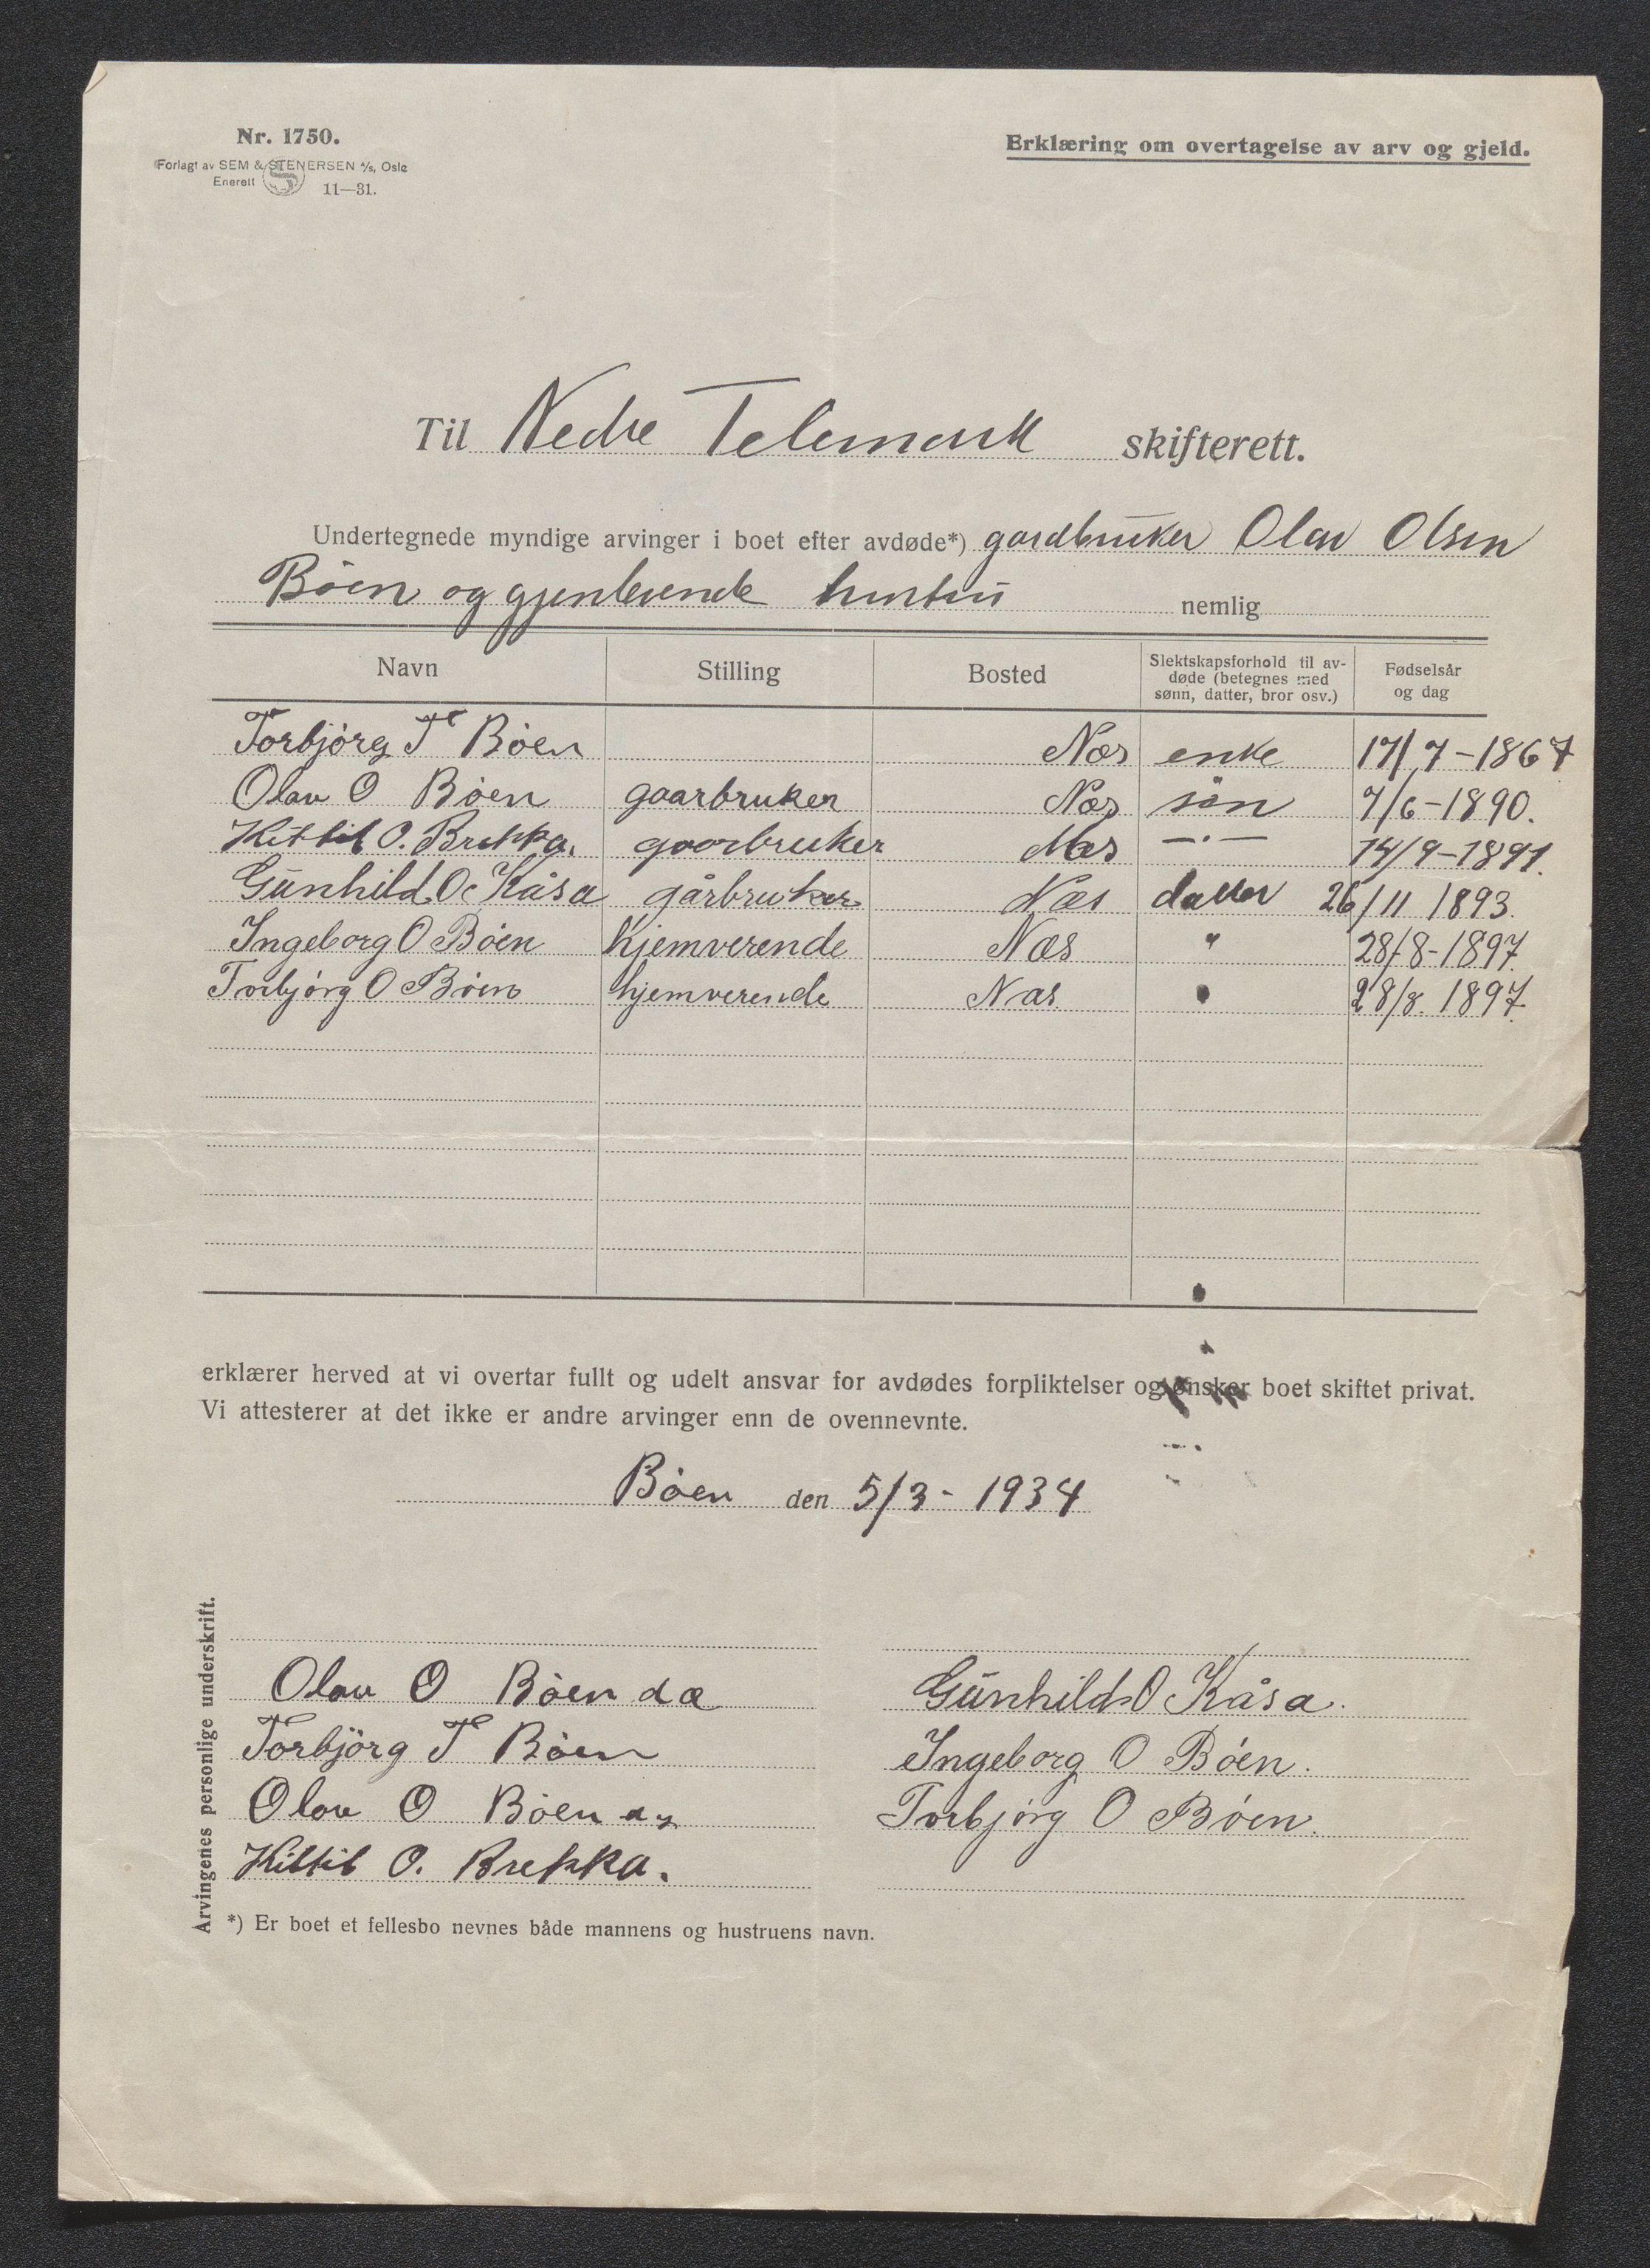 Nr. 1750.
Forlagt av SEM & STENERSEN A/s, Oslo
Enerett 11—31.
Erklæring om overtagelse av arv og gjeld.
Til Nedre Telemark skifterett.
Undertegnede myndige arvinger i boet efter avdøde*) gardbruker Olav Olsen
Bøen og gjenlevende hustru nemlig
Navn Stilling Bosted Slektskapsforhold til avdøde (betegnes med sønn, datter, bror osv.) Fødselsår og dag
Torbjörg T Böen Næs enke 17/7-1867
Olav O Böen gaarbruker Næs sön 7/6-1890.
Kittil O. Brekka. gaarbruker Næs —·— 14/9-1891.
Gunhild O. Kåsa gårbruker Næs datter 26/11 1893.
Ingeborg O Bøen hjemverende Næs " 28/8-1897.
Torbjørg O Bøen hjemverende Næs 28/8. 1897.
erklærer herved at vi overtar fullt og udelt ansvar for avdødes forpliktelser og ønsker boet skiftet privat.
Vi attesterer at det ikke er andre arvinger enn de ovennevnte.
Böen den 5/3- 1934
Arvingenes personlige underskrift.
Olav O Böen
Torbjörg T Böen
Olav O Böen
Kittil O. Brekka.
Gunhild O Kåsa.
Ingeborg O Bøen.
Torbjørg O Bøen.
*) Er boet et fellesbo nevnes både mannens og hustruens navn.